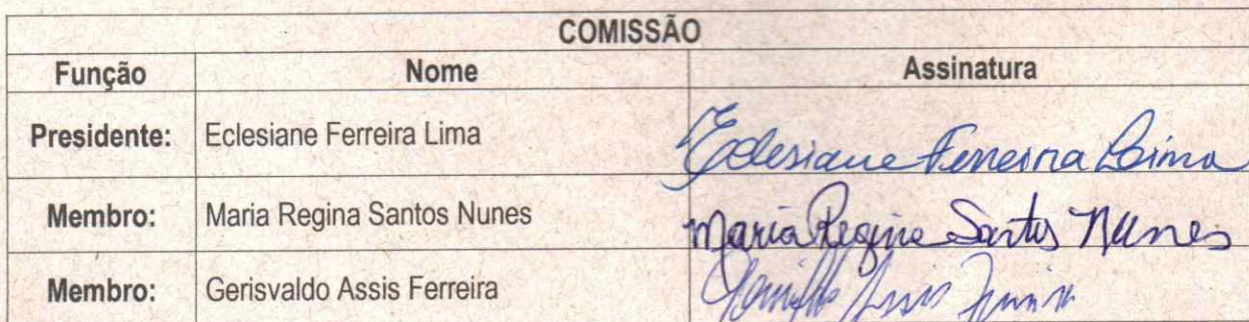 COMISSÃO
Função Nome Assinatura
Presidente: Eclesiane Ferreira Lima Eclesiane Ferreira Lima
Membro: Maria Regina Santos Nunes Maria Regina Santos Nunes
Membro: Gerisvaldo Assis Ferreira Assis